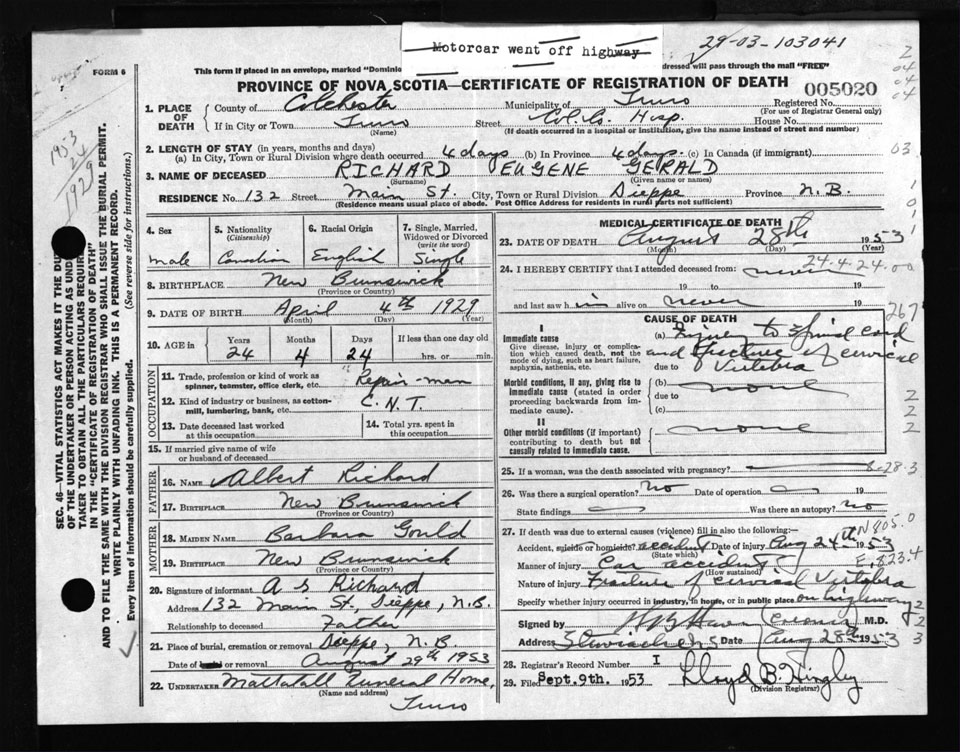 Motorcar went off highway
29-03-103041
FORM 6
This form if placed in an envelope, marked "Dominio
dressed will pass through the mail "FREE"
PROVINCE OF NOVA SCOTIA—CERTIFICATE OF REGISTRATION OF DEATH
005020
1. PLACE OF DEATH
County of Colchester Municipality of Truro Registered No.
(For use of Registrar General only)
If in City or Town Truro Street Col. Co. Hosp. House No.
(Name) (If death occurred in a hospital or institution, give the name instead of street and number)
2. LENGTH OF STAY (in years, months and days)
(a) In City, Town or Rural Division where death occurred 4 days (b) In Province 4 days (c) In Canada (if immigrant)
3. NAME OF DECEASED RICHARD EUGENE GERALD
(Surname) (Given name or names)
RESIDENCE No. 132 Main St. City, Town or Rural Division Dieppe Province N.B.
(Residence means usual place of abode. Post Office Address for residents in rural parts not sufficient)
4. Sex
male
5. Nationality
(Citizenship)
Canadian
6. Racial Origin
English
7. Single, Married, Widowed or Divorced
(write the word)
Single
8. BIRTHPLACE New Brunswick
(Province or Country)
9. DATE OF BIRTH April 4th 1929
(Month) (Day) (Year)
10. AGE in
Years Months Days If less than one day old
24 4 24 hrs. or min.
OCCUPATION
11. Trade, profession or kind of work as spinner, teamster, office clerk, etc. Repair-man
12. Kind of industry or business, as cotton-mill, lumbering, bank, etc. C.N.T.
13. Date deceased last worked at this occupation
14. Total yrs. spent in this occupation
15. If married give name of wife or husband of deceased
FATHER
16. NAME Albert Richard
17. BIRTHPLACE New Brunswick
(Province or Country)
MOTHER
18. MAIDEN NAME Barbara Gould
19. BIRTHPLACE New Brunswick
(Province or Country)
20. Signature of informant A S Richard
Address 132 Main St., Dieppe, N.B.
Relationship to deceased Father
21. Place of burial, cremation or removal Dieppe, N.B.
Date of burial or removal August 29th 1953
22. UNDERTAKER Mattatall Funeral Home,
(Name and address)
Truro
MEDICAL CERTIFICATE OF DEATH
23. DATE OF DEATH August 28th 1953
(Month) (Day)
24. I HEREBY CERTIFY that I attended deceased from: never
24-4-24-00
19 to 19
and last saw him alive on never 19
267
CAUSE OF DEATH
I
Immediate cause
Give disease, injury or complication which caused death, not the mode of dying, such as heart failure, asphyxia, asthenia, etc.
(a) Injury to spinal cord
and fracture of cervical
due to Vertebra
Morbid conditions, if any, giving rise to immediate cause (stated in order proceeding backwards from immediate cause).
(b) none
due to
(c)
II
Other morbid conditions (if important) contributing to death but not causally related to immediate cause.
none
25. If a woman, was the death associated with pregnancy?
8-28-3
26. Was there a surgical operation? No Date of operation 19
State findings Was there an autopsy? No
27. If death was due to external causes (violence) fill in also the following:
N805.0
Accident, suicide or homicide? accident Date of injury Aug 24th 1953
(State which)
Manner of injury Car accident E+823.4
(How sustained)
Nature of injury Fracture of cervical Vertebra
Specify whether injury occurred in industry, in home, or in public place on highway
Signed by Coroner M.D.
Address Date Aug 28th 1953
28. Registrar's Record Number I
29. Filed Sept. 9th. 1953 Lloyd B. Hingley
(Division Registrar)
SEC. 46—VITAL STATISTICS ACT MAKES IT THE DU
OF THE UNDERTAKER OR PERSON ACTING AS UND
TAKER TO OBTAIN ALL THE PARTICULARS REQUIR
IN THE "CERTIFICATE OF REGISTRATION OF DEATH"
AND TO FILE THE SAME WITH THE DIVISION REGISTRAR WHO SHALL ISSUE THE BURIAL PERMIT.
WRITE PLAINLY WITH UNFADING INK. THIS IS A PERMANENT RECORD.
Every item of information should be carefully supplied. (See reverse side for instructions.)
1953
24
1929